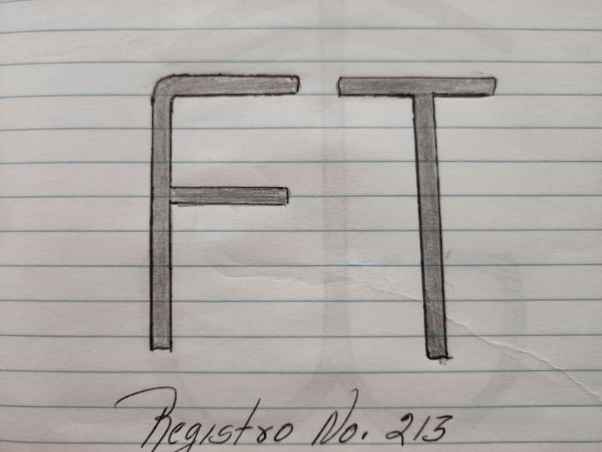 FT
Registro No. 213